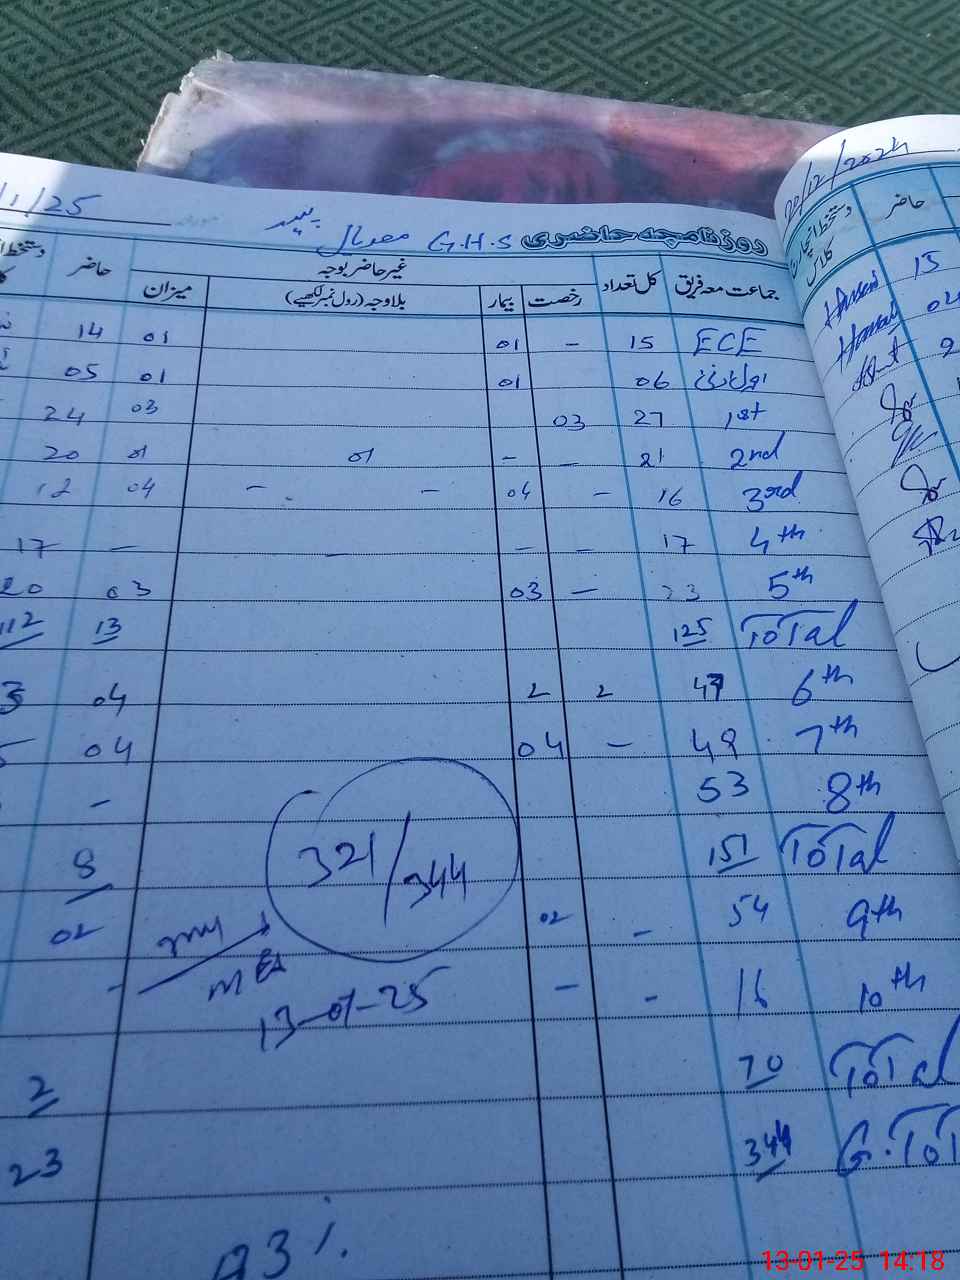 روزنامچہ حاضری G.H.S پیر
1/25
20/12/2024
جماعت معہ فریق کل تعداد غیر حاضر بوجہ حاضر
رخصت بیمار بلاوجہ (رول نمبر لکھیے) میزان
دستخط انچارج کلاس حاضر
ECE 15 – 01 01 14
06 01 01 05
1st 27 03 03 24
2nd 21 – – 01 01 20
3rd 16 – 04 – – 04 12
4th 17 – – – – 17
5th 23 – 03 03 20
Total 125 13 112
6th 47 2 2 04
7th 48 – 04 04
8th 53 –
Total 151 8
321/344
9th 54 – 02 02
10th 16 – – –
13-01-25
Total 70 2
G.Tot 344 23
93%
13-01-25 14:18